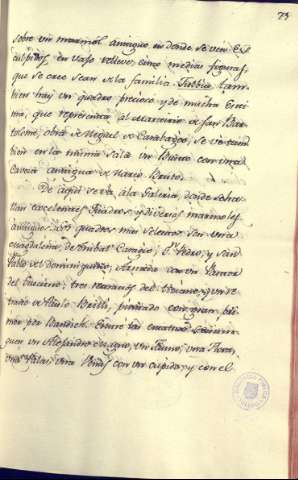 73
sobre un marmol antiguo en donde se ven Es
culpidas en vajo relieve, cinco medias figuras,
que se cree sean de la familia tam
bien hay un quadro precioso y de mucha Esti
ma, que representa al Martirio de San Bar
tolomé, obra de Miguel de Carabagio, se ve tam
bien en la misma sala un Busto con una
Caveza antigua de Marco Bruto.
De aqui se va a la Galeria, donde se ha
llan excelentes Quadros, y diversos marmoles
antiguos. Los quadros mas selectos son una
Magdalena, de Anibal Caraciu; Sn. Pedro, y San
Pablo del Dominiquino, Armida con un Pastor
del Guercino; tres retratos del Ticiano, y un re
trato de Paulo Brilli, pintado con gran pri
mor por Bandich. Entre las estatuas se distin
guen un Alejandro magno, un Fauno, una
una Palas, una Venus con un cupido, y con el